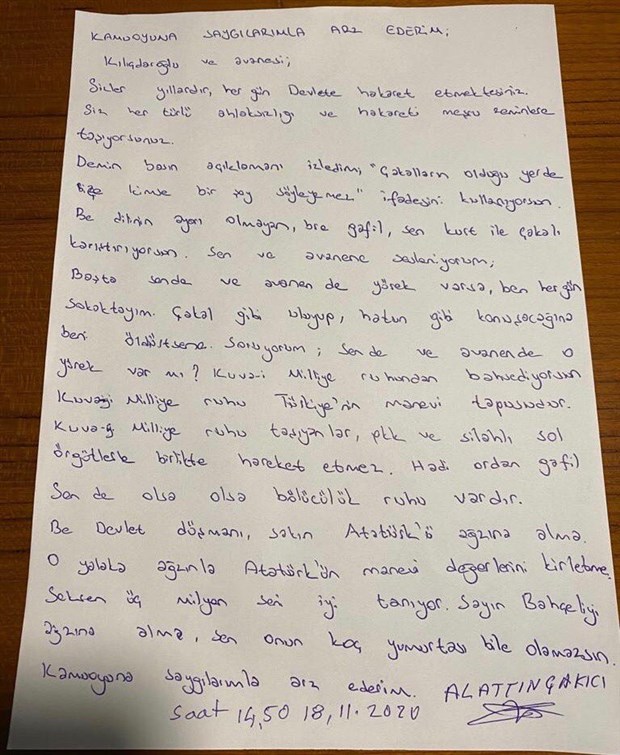 KAMUOYUNA SAYGILARIMLA ARZ EDERİM;
Kılıçdaroğlu ve avanesi;
Sizler yıllardır, her gün Devlete hakaret etmektesiniz.
Siz her türlü ahlaksızlığı ve hakareti meşru zeminlere
taşıyorsunuz.
Demin basın açıklamanı izledim, "Çakalların olduğu yerde
bize kimse bir şey söyleyemez" ifadesini kullanıyorsun.
Be dilinin ayarı olmayan, bre gafil, sen kurt ile çakalı
karıştırıyorsun. Sen ve avanene sesleniyorum;
Başta sende ve avanen de yürek varsa, ben her gün
sokaktayım. Çakal gibi uluyup, hatun gibi konuşacağına
beni öldürtsene. Soruyorum; sen de ve avanende o
yürek var mı? Kuva-i Milliye ruhundan bahsediyorsun
Kuvayi Milliye ruhu Türkiye'nin manevi tapusudur.
Kuva-yi Milliye ruhu taşıyanlar, pkk ve silahlı sol
örgütlerle birlikte hareket etmez. Hadi ordan gafil
Sen de olsa olsa bölücülük ruhu vardır.
Be Devlet düşmanı, sakın Atatürk'ü ağzına alma.
O yalaka ağzınla Atatürk'ün manevi değerlerini kirletme.
Seksen üç milyon seni iyi tanıyor. Sayın Bahçeliyi
ağzına alma, sen onun koç yumurtası bile olamazsın.
Kamuoyuna saygılarımla arz ederim. ALATTİN ÇAKICI
saat 14,50 18,11.2020